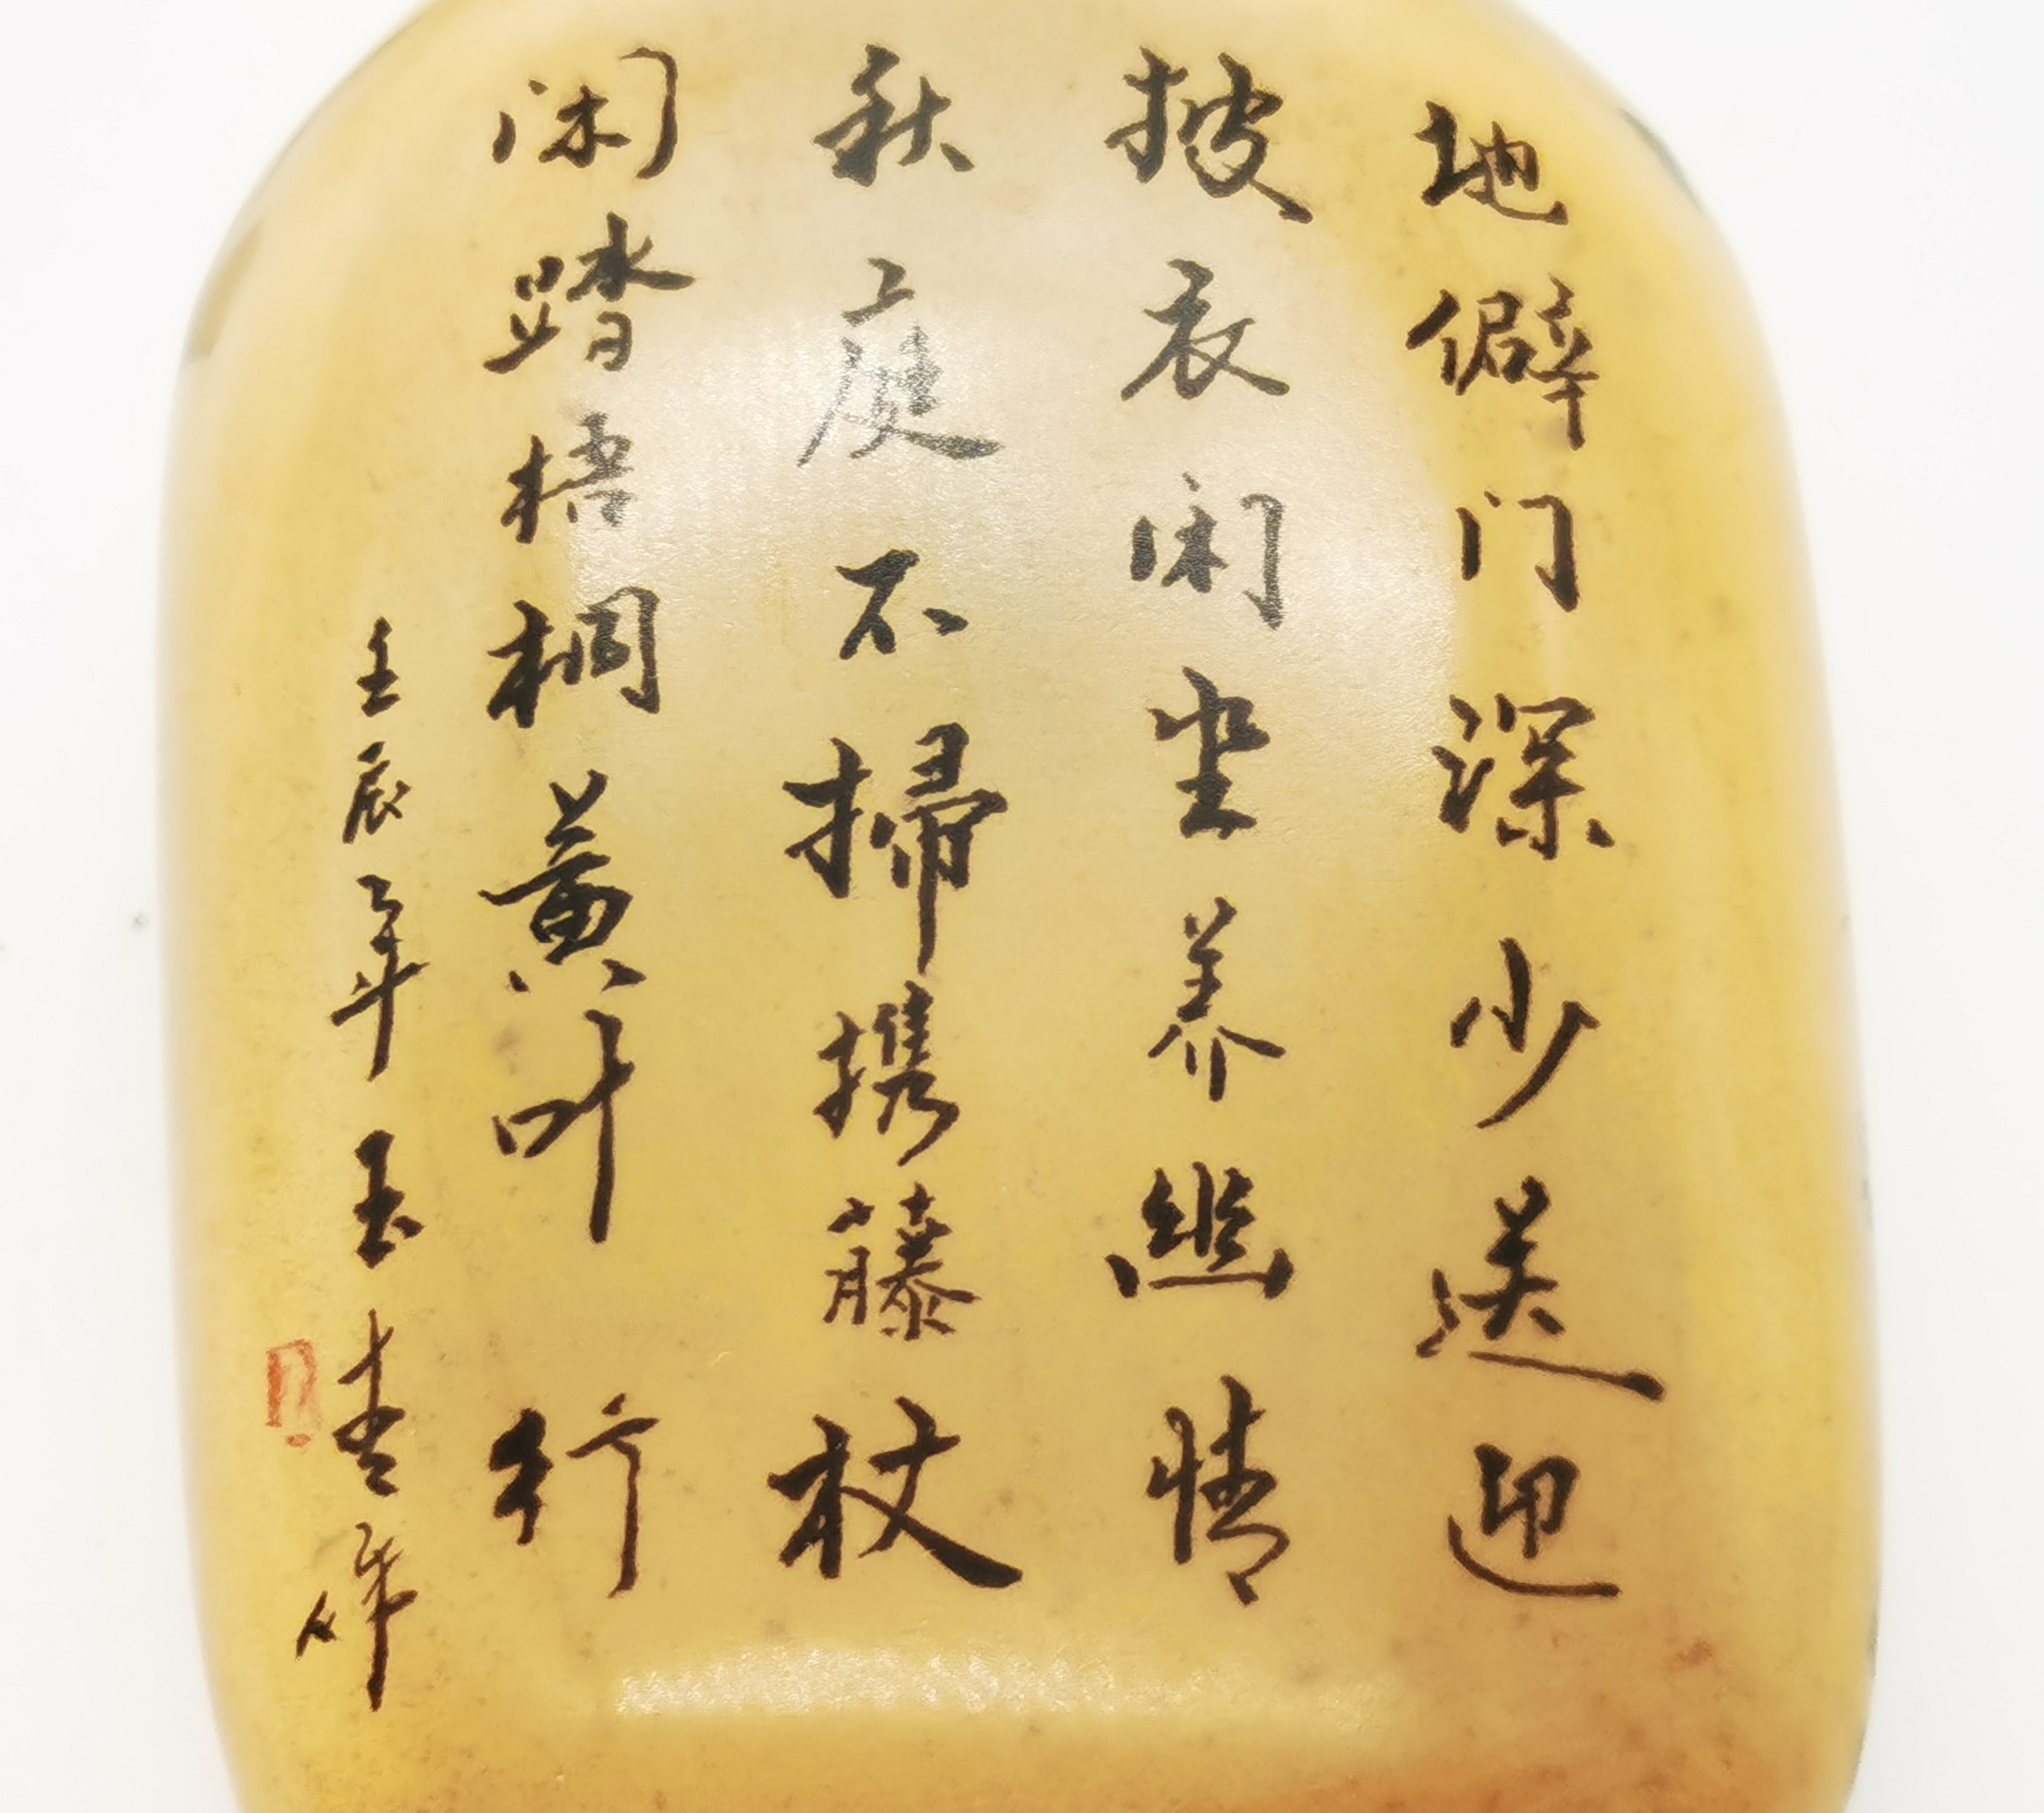 地僻门深少送迎
披衣闲坐养幽情
秋庭不掃携藤杖
闲踏梧桐黄叶行
壬辰年玉书作